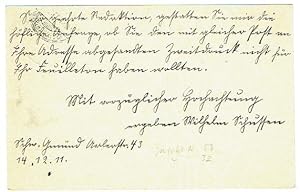 Sehr geehrte Redaktion, gestatten Sie mir die
höfliche Anfrage, ob Sie den mit gleicher Post an
Ihre Adresse abgesandten Zweitdruck nicht für
Ihr Feuilleton haben wollten.
Mit vorzüglicher Hochachtung
ergeben Wilhelm Schussen
Schw. Gmünd Aalerstr. 43
14. 12. 11.